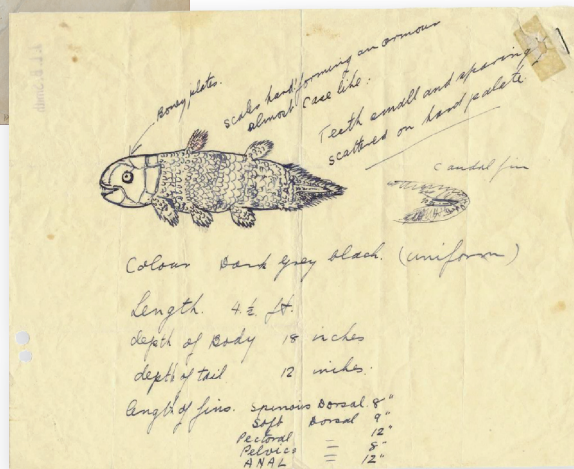 Boney plates.
scales hard forming an armour
almost case like.
Teeth small and sparing
scattered on hard palate
Caudal fin
Colour Dark grey black. (uniform)
Length. 4.½. ft.
depth of Body 18 inches
depth of tail 12 inches.
length of fins. Spinous Dorsal 8"
Soft Dorsal 9"
Pectoral = 12"
Pelvic = 8"
ANAL = 12"